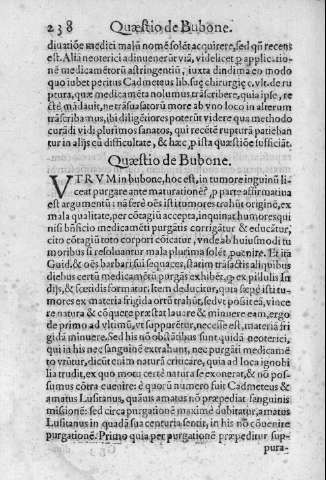 238 Quæstio de Bubone.
diuatiõe medici malũ nomẽ solẽt acquirere, sed qñ recens
est. Aliã neoterici adinuenerũt viã, videlicet p applicatio-
nẽ medicamẽtorũ astringentiũ, iuxta dindima eo modo
quo iubet peritus Cadmeteus lib. suę chirurgię c. vlt. de ru
ptura, quæ medicamẽta nolumus trãscribere, quia ipse, re
ctè mãdauit, ne trãsuasatorũ more ab vno loco in alterum
trãscribamus, ibi diligẽtiores poterũt videre qua methodo
curãdi vidi plurimos sanatos, qui recẽtẽ rupturã patieban
tur in alijs cũ difficultate, & hæc, p ista quæstiõe sufficiãt.
Quæstio de Bubone.
VTRVM in bubone, hoc est, in tumore inguinũ li-
ceat purgare ante maturationẽ, p parte affirmatiua
est argumentũ: nã ferè oẽs isti tumores trahũt originẽ, ex
mala qualitate, per cõtagiũ accepta, inquinat humores qui
nisi bñficio medicamẽti purgãtis corrigãtur & educãtur,
cito cõtagiũ toto corpori cõicatur, vnde ab huiusmodi tu
moribus si resoluantur mala plurima solẽt puenire. Et ita
Guid. & oẽs barbari sui sequaces, statim trãsactis aliquibus
diebus certũ medicamẽtũ purgãs exhibẽt, ex pillulis In
dijs, & fœtidis formatur. Item deducitur, quia sæpe isti tu-
mores ex materia frigida ortũ trahũt, sed vt positẽ eã, vince
re natura & cõquere præstat lauare & minuere eam, ergo
de primo ad vltimũ, vt suppurẽtur, necesse est, materiã fri
gidã minuere. Sed his nõ obstãtibus sunt quidã neoterici,
qui in his nec sanguinẽ extrahunt, nec purgãti medicamẽ
to vtũtur, dicũt enim naturã criticare, quia ad loca ignobi
lia trudit, ex quo motu certè natura se exonerat, & nõ pos-
sumus cõtra euenire: è quorũ numero suit Cadmeteus &
amatus Lusitanus, quãuis amatus nõ præpediat sanguinis
missionẽ: sed circa purgationẽ maximè dubitatur, amatus
Lusitanus in quadã sua centuria sentit, in his nõ cõuenire
purgationẽ. Primo quia per purgationẽ præpeditur sup-
pura-